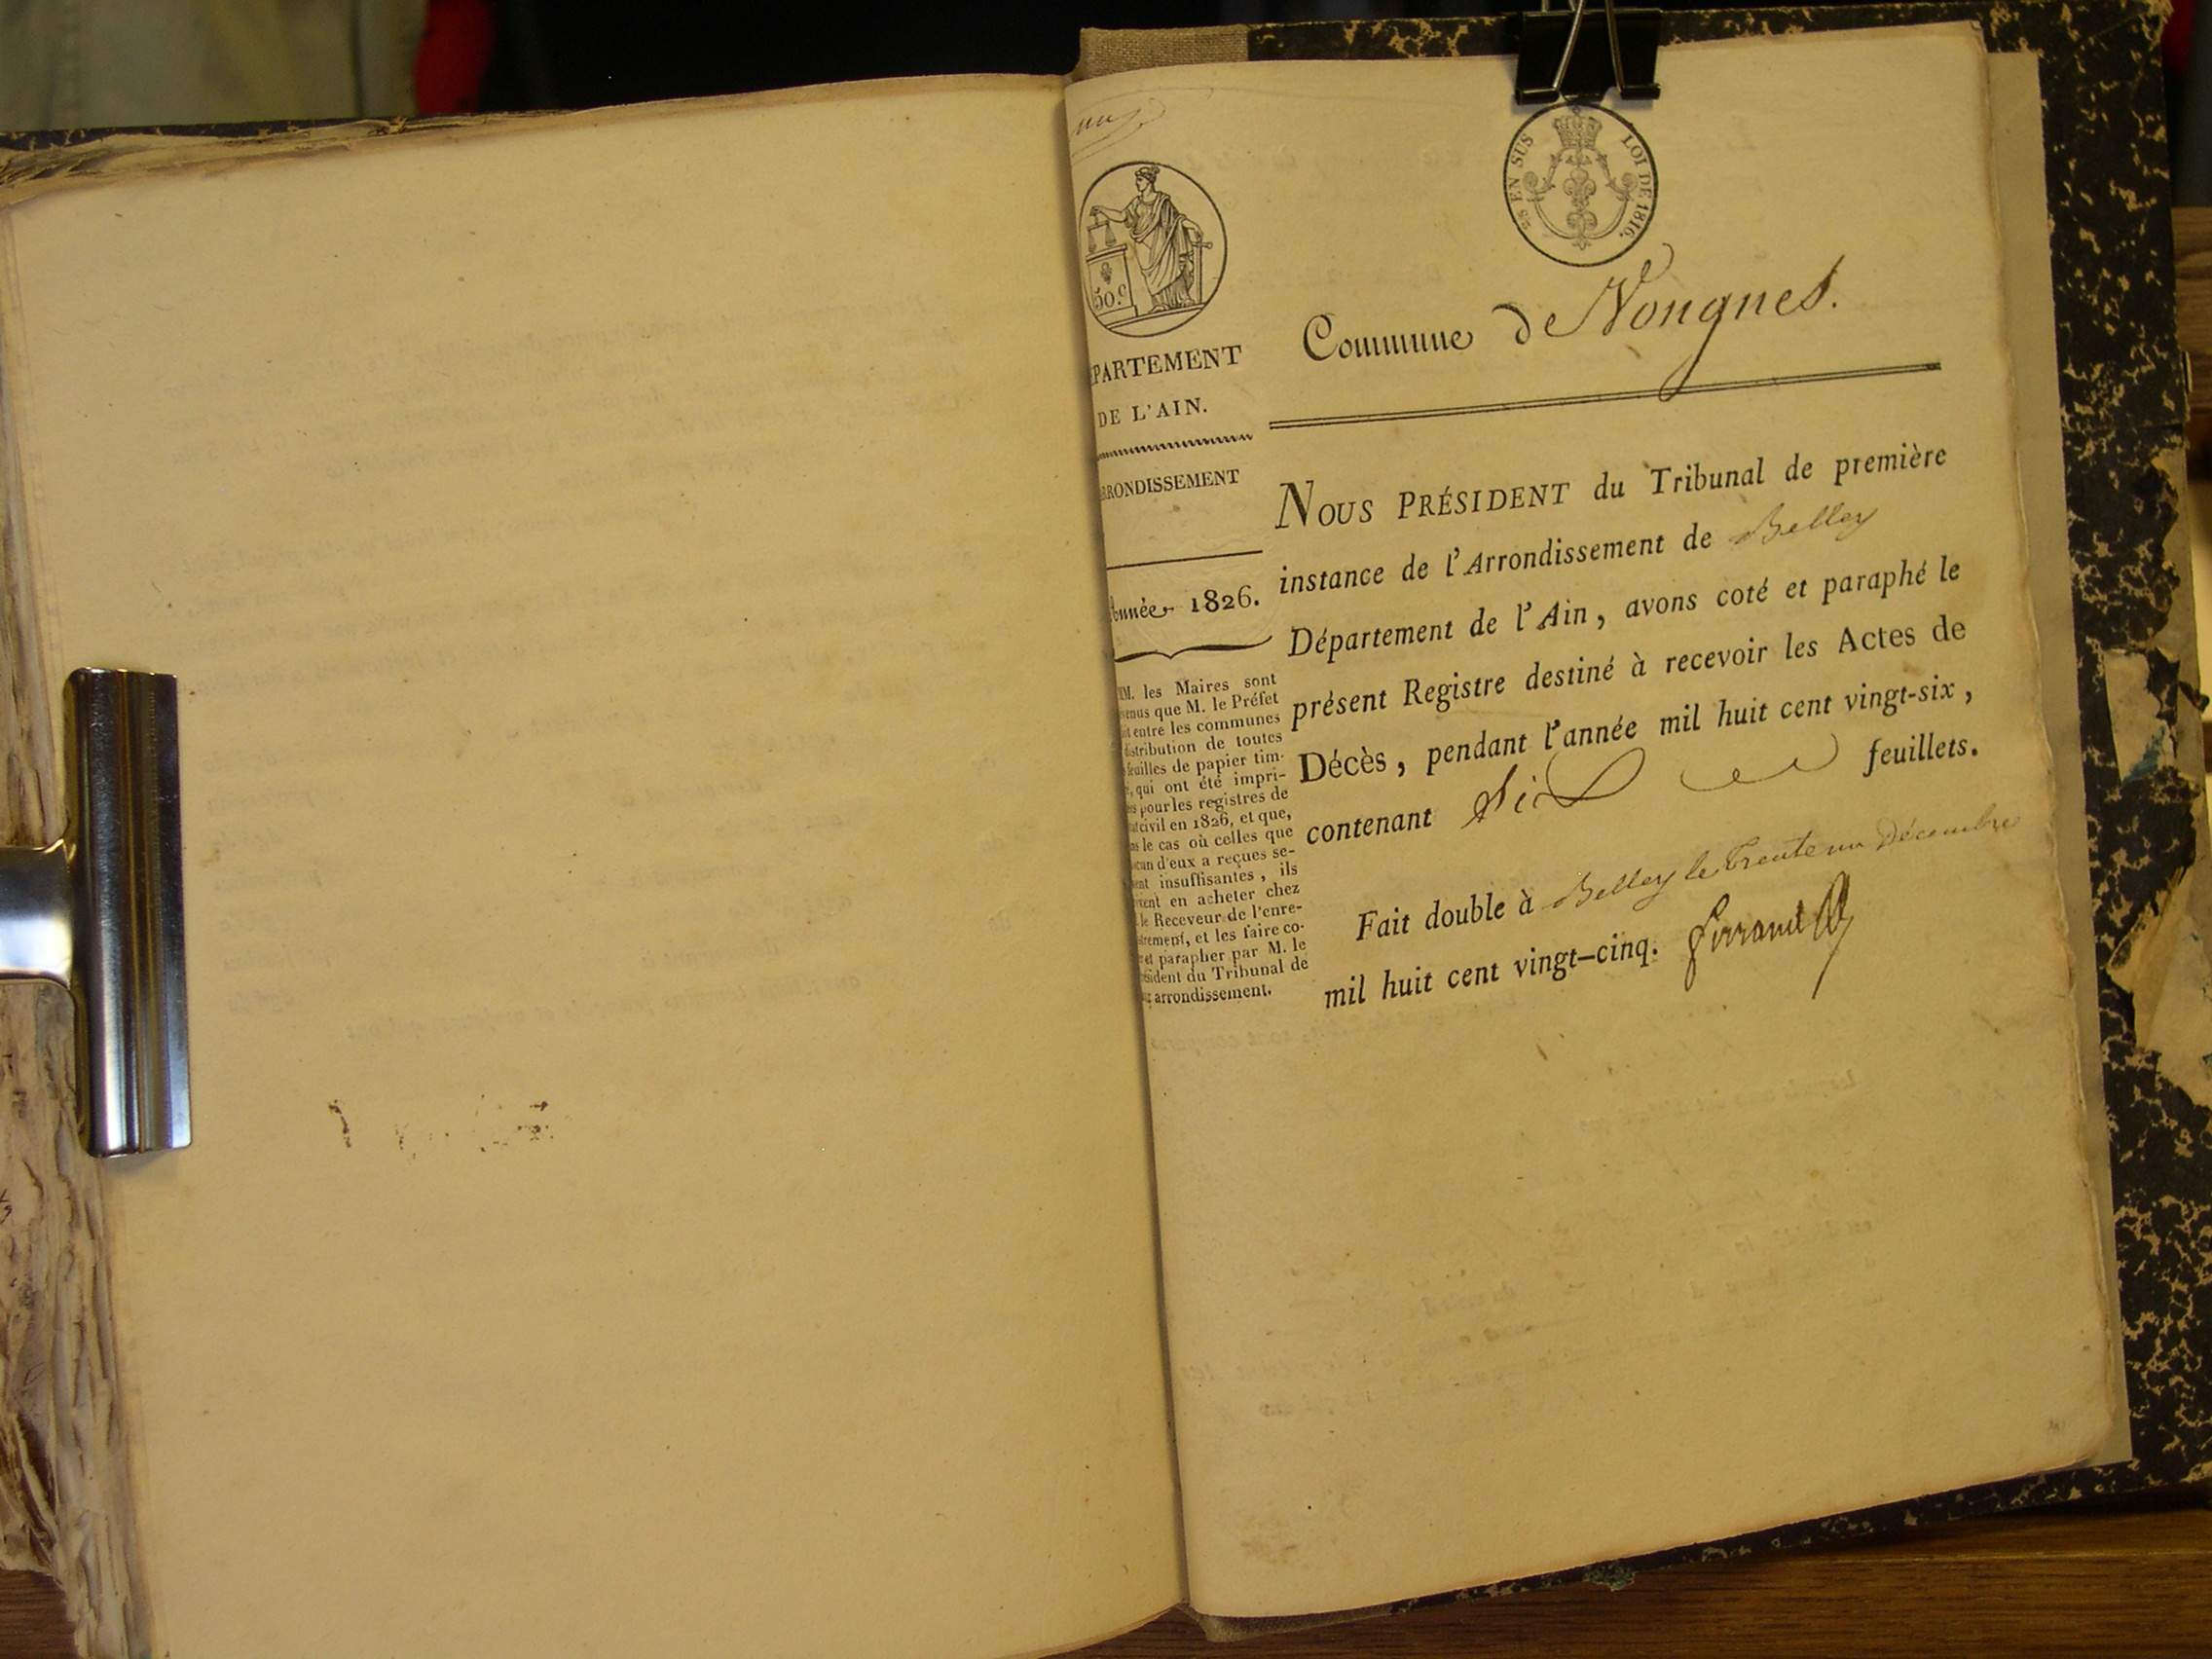 25 EN SUS
LOI DE 1816.
50 c
PARTEMENT
DE L'AIN.
RRONDISSEMENT
Année 1826.
MM. les Maires sont
venus que M. le Préfet
it entre les communes
distribution de toutes
feuilles de papier tim-
, qui ont été impri-
es pour les registres de
at civil en 1826, et que,
ns le cas où celles que
acun d'eux a reçues se-
ient insuffisantes, ils
vent en acheter chez
le Receveur de l'enre-
strement, et les faire co-
et parapher par M. le
ésident du Tribunal de
arrondissement.
Commune de Nongnes.
NOUS PRÉSIDENT du Tribunal de première
instance de l'Arrondissement de Belley
Département de l'Ain, avons coté et paraphé le
présent Registre destiné à recevoir les Actes de
Décès, pendant l'année mil huit cent vingt-six,
contenant Six feuillets.
Fait double à Belley le trente un Décembre
mil huit cent vingt-cinq.